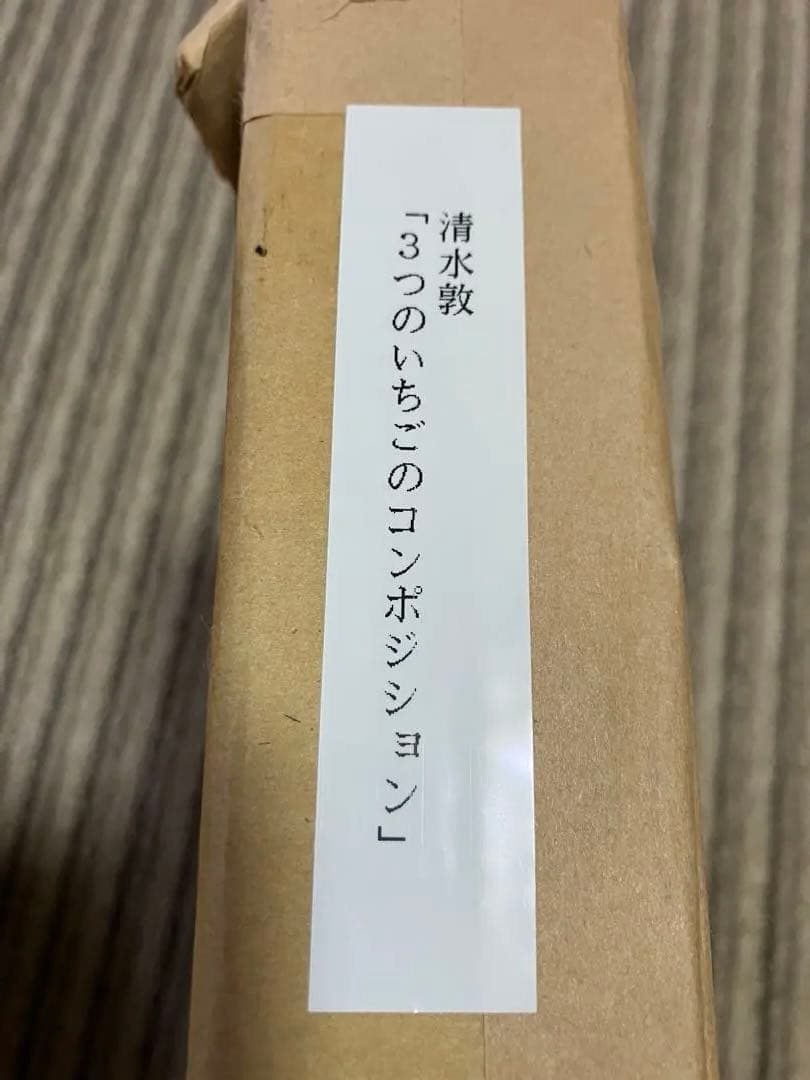 清水敦
「3つのいちごのコンポジション」